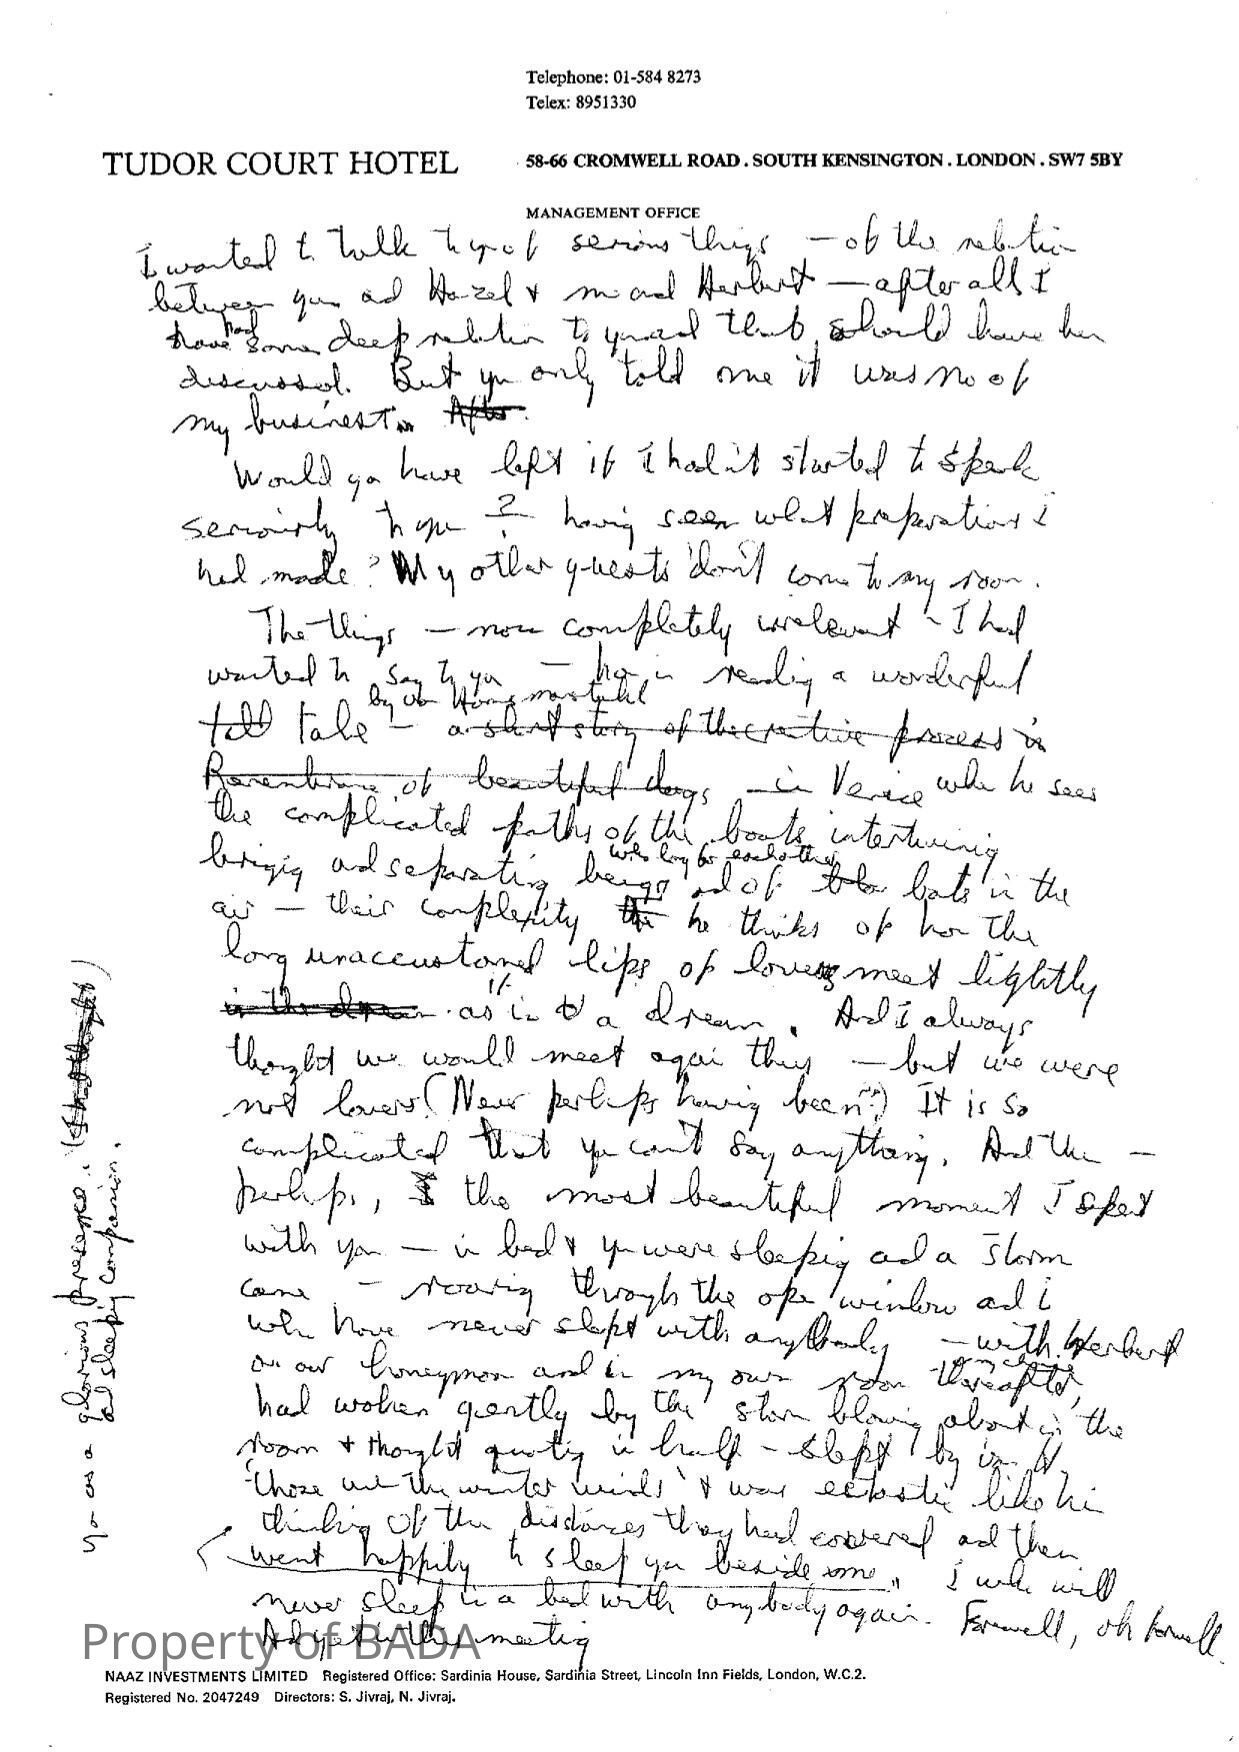 Telephone: 01-584 8273
Telex: 8951330
TUDOR COURT HOTEL
58-66 CROMWELL ROAD . SOUTH KENSINGTON . LONDON . SW7 5BY
MANAGEMENT OFFICE
I wanted to talk to you of serious things — of the relation
between you and Hazel & me and Herbert — after all I
have had some deep relation to you and that should have been
discussed. But you only told me it was no of
my business. After
Would you have left if I hadn't started to speak
seriously to you? having seen what preparations I
had made? My other guests don't come to my room.
The things — now completely irrelevant - I had
wanted to say to you — how in reading a wonderful
by von Hofmannsthal
tale — a short story of the creative process in
of beautiful days — in Venice when he sees
the complicated paths of the boats intertwining
who long for each other
bringing and separating beings and of bats in the
air — their complexity he thinks of how the
long unaccustomed lips of lovers meet lightly
in the dream as if in a dream. And I always
thought we would meet again thus — but we were
not lovers (Never perhaps having been?) It is so
complicated that you can't say anything. And the —
perhaps, the most beautiful moment I spent
with you — in bed & you were sleeping and a storm
came — roaring through the open window and I
who have never slept with anybody — with Herbert
on our honeymoon and in my own room thereafter,
had woken gently by the storm blowing about in the
room & thought quoting in half-slept by
'those are the winter winds' & was ecstatic like him
thinking of the distances they had covered and then
went happily to sleep you beside me. I who will
never sleep in a bed with anybody again. Farewell, oh farewell.
And yet in the meeting
you as a glorious presence
and sleepy companion.
Property of BADA
NAAZ INVESTMENTS LIMITED Registered Office: Sardinia House, Sardinia Street, Lincoln Inn Fields, London, W.C.2.
Registered No. 2047249 Directors: S. Jivraj, N. Jivraj.